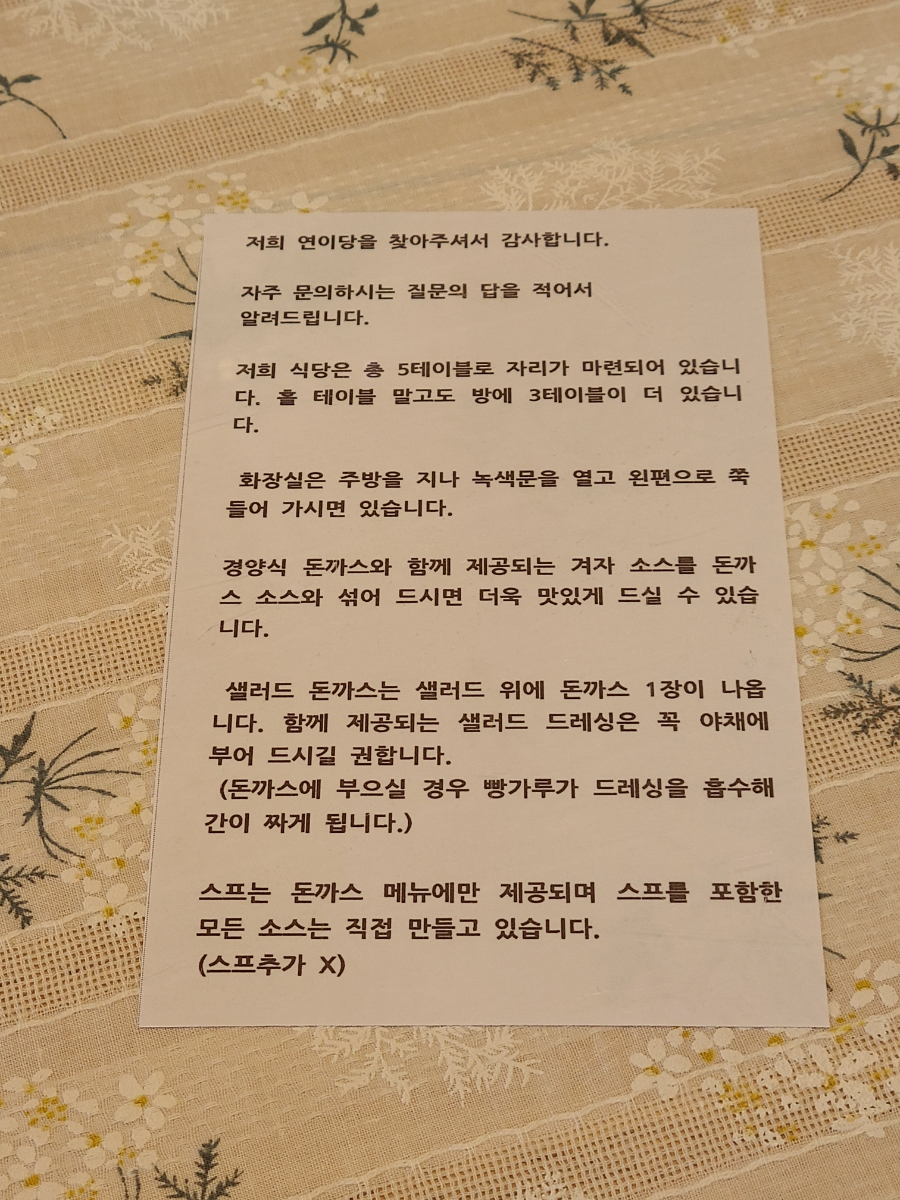 저희 연이당을 찾아주셔서 감사합니다.
자주 문의하시는 질문의 답을 적어서
알려드립니다.
저희 식당은 총 5테이블로 자리가 마련되어 있습니
다. 홀 테이블 말고도 방에 3테이블이 더 있습니
다.
화장실은 주방을 지나 녹색문을 열고 왼편으로 쭉
들어 가시면 있습니다.
경양식 돈까스와 함께 제공되는 겨자 소스를 돈까
스 소스와 섞어 드시면 더욱 맛있게 드실 수 있습
니다.
샐러드 돈까스는 샐러드 위에 돈까스 1장이 나옵
니다. 함께 제공되는 샐러드 드레싱은 꼭 야채에
부어 드시길 권합니다.
(돈까스에 부으실 경우 빵가루가 드레싱을 흡수해
간이 짜게 됩니다.)
스프는 돈까스 메뉴에만 제공되며 스프를 포함한
모든 소스는 직접 만들고 있습니다.
(스프추가 X)